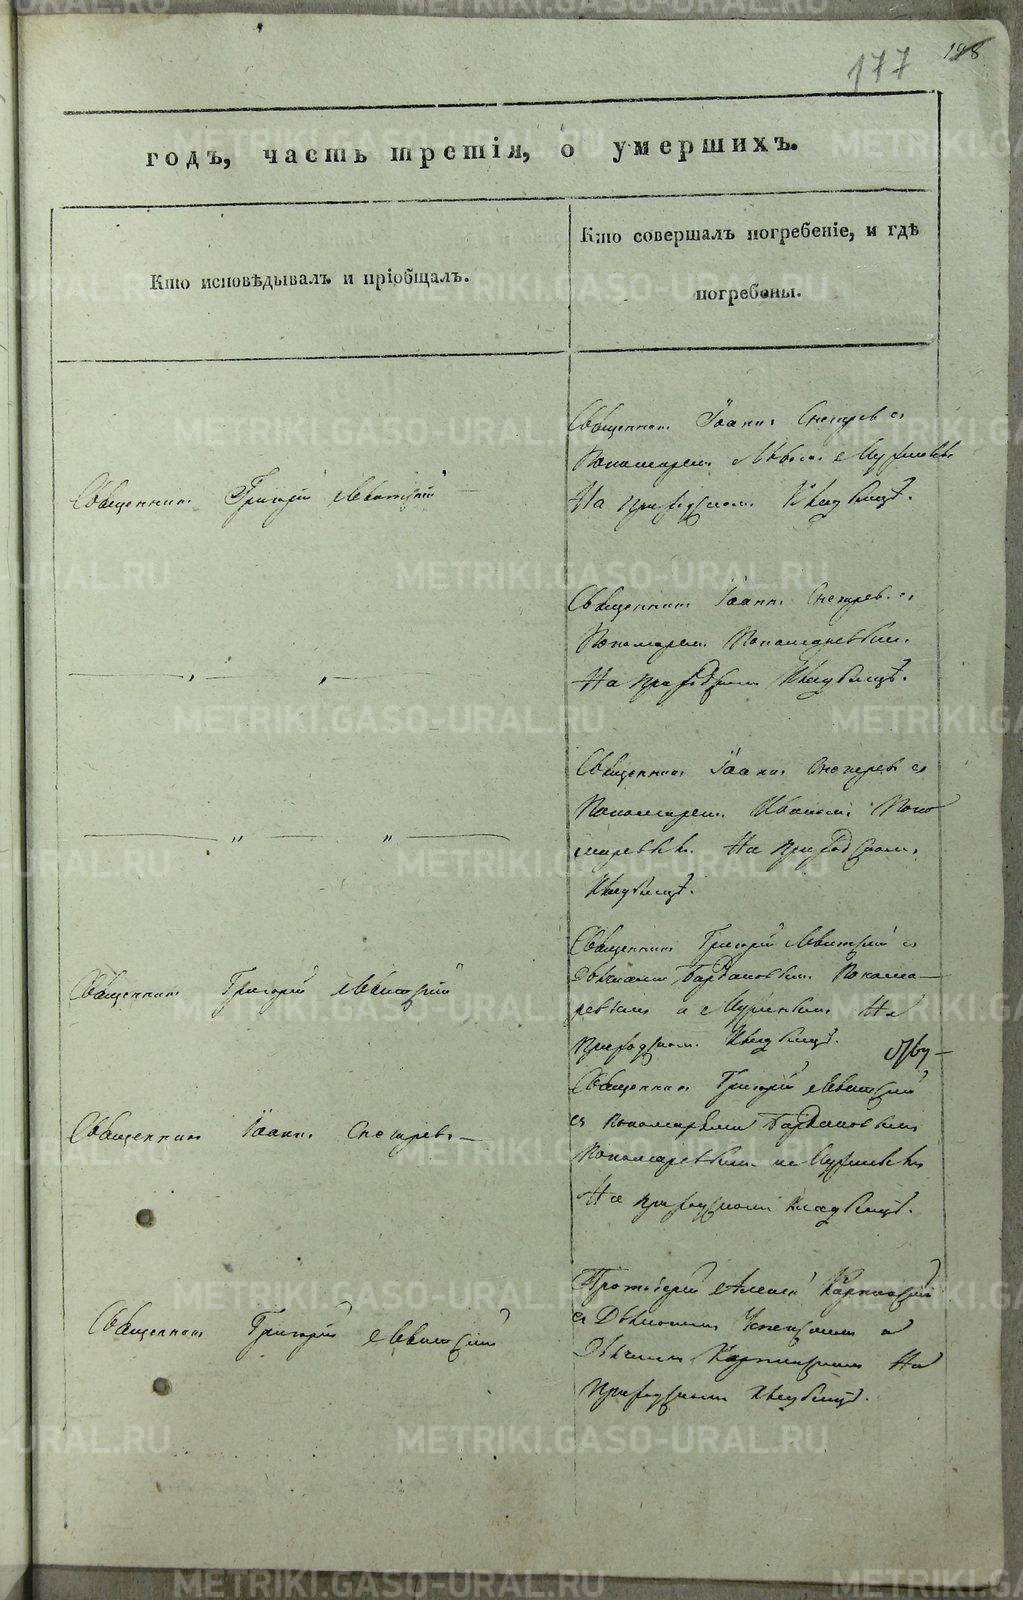 177
198
годъ, часть третія, о умершихъ.
Кто исповѣдывалъ и пріобщалъ.
Кто совершалъ погребеніе, и гдѣ
погребены.
Священникъ Григорій Левитскій
Священникъ Іоаннъ Снегиревъ съ
Пономаремъ
На приходскомъ кладбищѣ.
Священникъ Іоаннъ Снегиревъ съ
Пономаремъ Пономаревымъ
На приходскомъ кладбищѣ.
Священникъ Іоаннъ Снегиревъ съ
Пономаремъ Иваномъ Поно
маревымъ На приходскомъ
кладбищѣ.
Священникъ Григорій Левитскій
Священникъ Григорій Левитскій съ
Понома
ревымъ и На
приходскомъ кладбищѣ.
Священникъ Іоаннъ Снегиревъ
Священникъ Григорій Левитскій
съ пономарями
Пономаревымъ и
На приходскомъ кладбищѣ.
Священникъ Григорій Левитскій
Протоіерей Алексій Карпинскій
съ Діакономъ Успенскимъ и
Дьячкомъ Карпинскимъ На
приходскомъ кладбищѣ.
METRIKI.GASO-URAL.RU